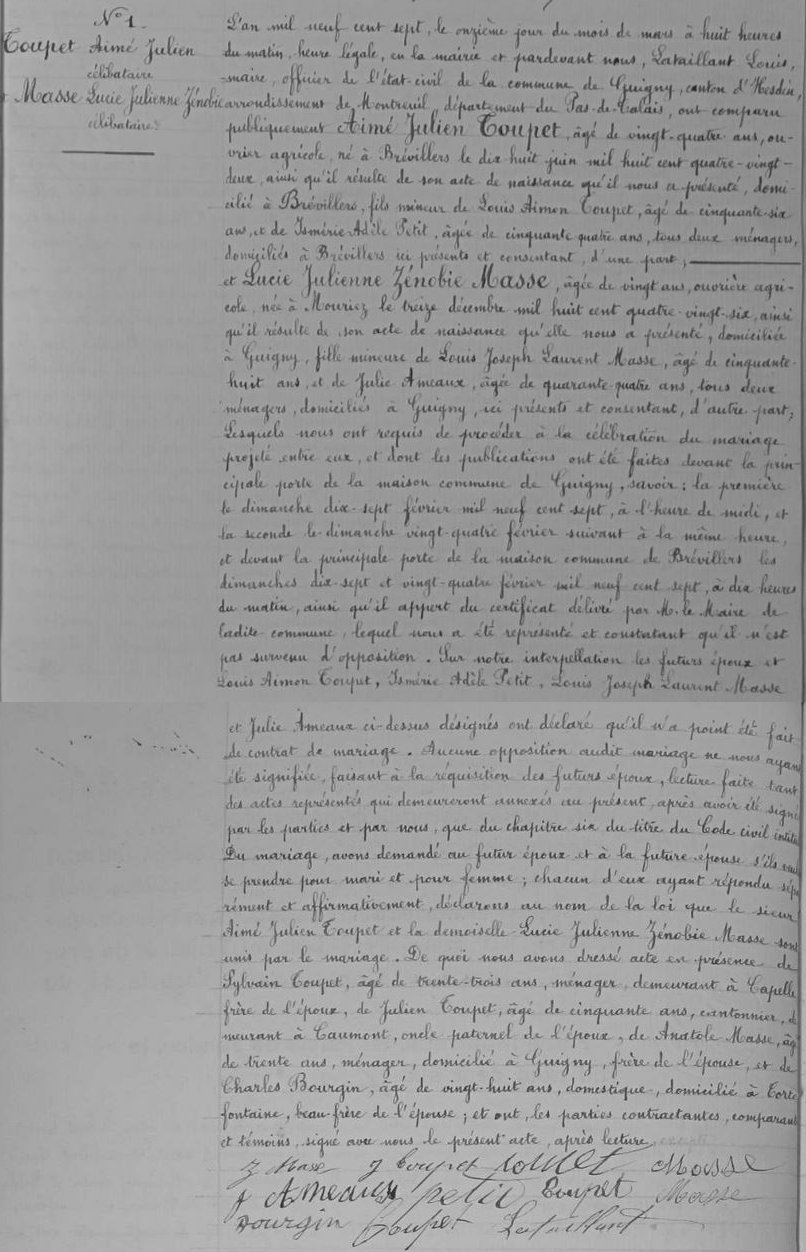 N° 1
Toupet Aimé Julien
célibataire
Masse Lucie Julienne Zénobie
célibataire
L'an mil neuf cent sept, le onzième jour du mois de mars à huit heures
du matin, heure légale, en la mairie et pardevant nous, Lataillant Louis,
maire, officier de l'état-civil de la commune de Guigny, canton d'Hesdin,
arrondissement de Montreuil, département du Pas-de-Calais, ont comparu
publiquement Aimé Julien Toupet, âgé de vingt-quatre ans, ou-
vrier agricole, né à Brévillers le dix-huit juin mil huit cent quatre-vingt-
deux, ainsi qu'il résulte de son acte de naissance qu'il nous a présenté, domi-
cilié à Brévillers, fils mineur de Louis Aimon Toupet, âgé de cinquante-six
ans, et de Ismérie Adèle Petit, âgée de cinquante quatre ans, tous deux ménagers,
domiciliés à Brévillers ici présents et consentant, d'une part;
et Lucie Julienne Zénobie Masse, âgée de vingt ans, ouvrière agri-
cole, née à Mouriez le treize décembre mil huit cent quatre-vingt-six, ainsi
qu'il résulte de son acte de naissance qu'elle nous a présenté, domiciliée
à Guigny, fille mineure de Louis Joseph Laurent Masse, âgé de cinquante-
huit ans, et de Julie Ameaux, âgée de quarante-quatre ans, tous deux
ménagers, domiciliés à Guigny, ici présents et consentant, d'autre part;
Lesquels nous ont requis de procéder à la célébration du mariage
projeté entre eux, et dont les publications ont été faites devant la prin-
cipale porte de la maison commune de Guigny, savoir: la première
le dimanche dix-sept février mil neuf cent sept, à l'heure de midi, et
la seconde le dimanche vingt-quatre février suivant à la même heure,
et devant la principale porte de la maison commune de Brévillers les
dimanches dix-sept et vingt-quatre février mil neuf cent sept, à dix heures
du matin, ainsi qu'il appert du certificat délivré par M. le Maire de
ladite commune, lequel nous a été représenté et constatant qu'il n'est
pas survenu d'opposition. Sur notre interpellation les futurs époux et
Louis Aimon Toupet, Ismérie Adèle Petit, Louis Joseph Laurent Masse
et Julie Ameaux ci-dessus désignés ont déclaré qu'il n'a point été fait
de contrat de mariage. Aucune opposition audit mariage ne nous ayant
été signifiée, faisant à la réquisition des futurs époux, lecture faite tant
des actes représentés qui demeureront annexés au présent, après avoir été signé
par les parties et par nous, que du chapitre six du titre du Code civil intitu
Du mariage, avons demandé au futur époux et à la future épouse s'ils veul
se prendre pour mari et pour femme; chacun d'eux ayant répondu sépa
rément et affirmativement, déclarons au nom de la loi que le sieur
Aimé Julien Toupet et la demoiselle Lucie Julienne Zénobie Masse sont
unis par le mariage. De quoi nous avons dressé acte en présence de
Sylvain Toupet, âgé de trente-trois ans, ménager, demeurant à Capelle
frère de l'époux, de Julien Toupet, âgé de cinquante ans, cantonnier, de
meurant à Caumont, oncle paternel de l'époux, de Anatole Masse, âgé
de trente ans, ménager, domicilié à Guigny, frère de l'épouse, et de
Charles Bourgin, âgé de vingt-huit ans, domestique, domicilié à Torte
fontaine, beau-frère de l'épouse; et ont, les parties contractantes, comparant
et témoins, signé avec nous le présent acte, après lecture.
Z Masse J Toupet Toupet Masse
J Ameaux petit Toupet Masse
Bourgin Toupet Lataillant